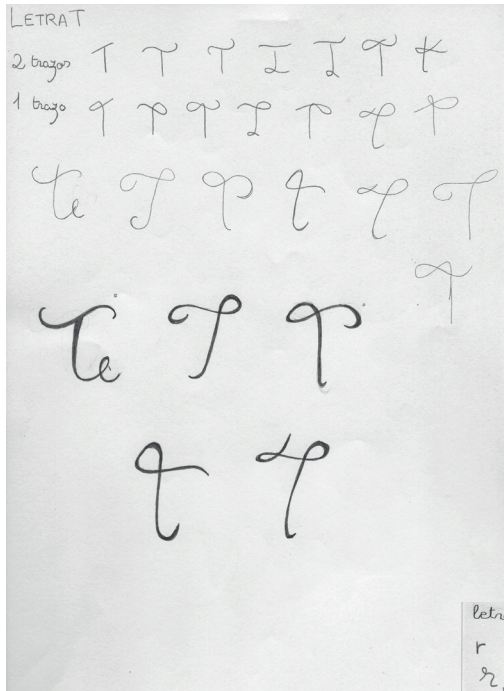 LETRA T
2 trazos T T T T T T T
1 trazo T T T T T T T
Te T T T T T
T
Te T T
T T
letr
r
r